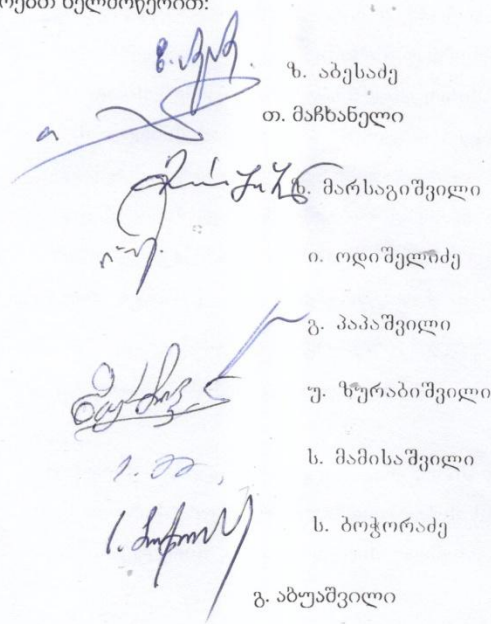 ხელმოწერით:
ზ. აბესაძე
თ. მაჩხანელი
ზ. მარსაგიშვილი
ი. ოდიშელიძე
გ. პაპაშვილი
უ. ზურაბიშვილი
ს. მამისაშვილი
ს. ბოჭორაძე
გ. აბუაშვილი